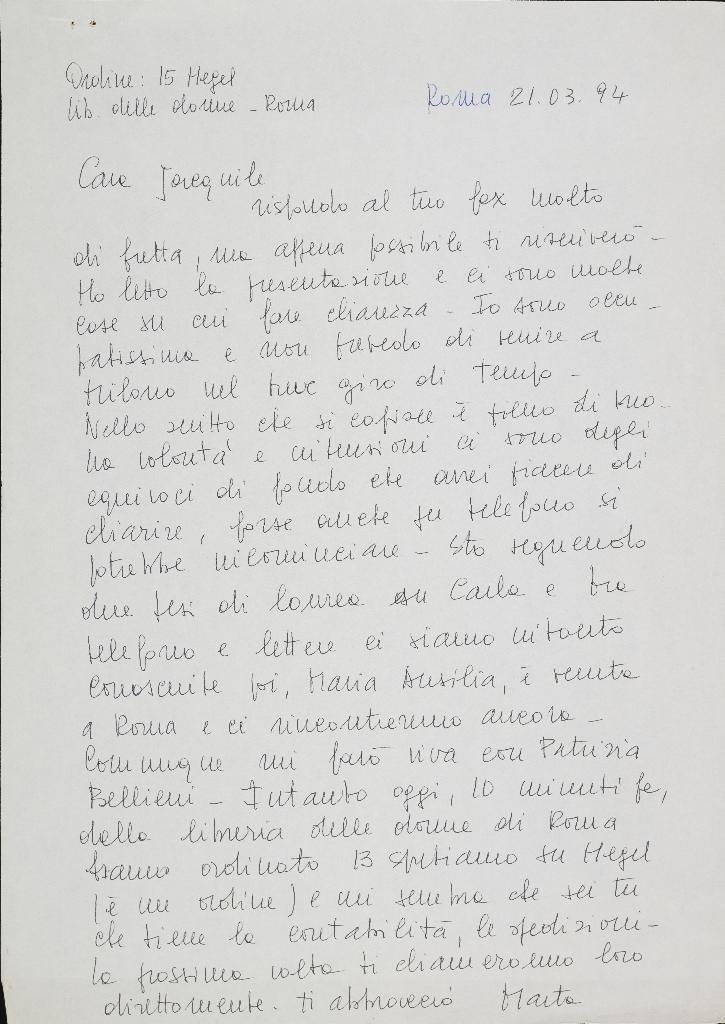 Ordine: 15 Hegel
Lib. delle donne - Roma
Roma 21.03.94
Cara
rispondo al tuo fax molto
di fretta, ma appena possibile ti riscriverò -
Ho letto la presentazione e ci sono molte
cose su cui fare chiarezza - Io sono occu-
patissima e non prevedo di venire a
Milano nel breve giro di tempo -
Nello scritto che si capisce è pieno di buo-
na volontà e intenzioni ci sono degli
equivoci di fondo che avrei piacere di
chiarire, forse anche per telefono si
potrebbe incominciare - Sto seguendo
due tesi di laurea su Carla e tra
telefono e lettere ci siamo intanto
conosciute poi, Maria Ausilia, è venuta
a Roma e ci rincontreremo ancora -
Comunque mi farò viva con Patrizia
Bellieni - Intanto oggi, 10 minuti fa,
dalla libreria delle donne di Roma
hanno ordinato 13 sputiamo su Hegel
(è un ordine) e mi sembra che sei tu
che tiene la contabilità, le spedizioni -
la prossima volta ti chiameranno loro
direttamente. ti abbraccio Marta